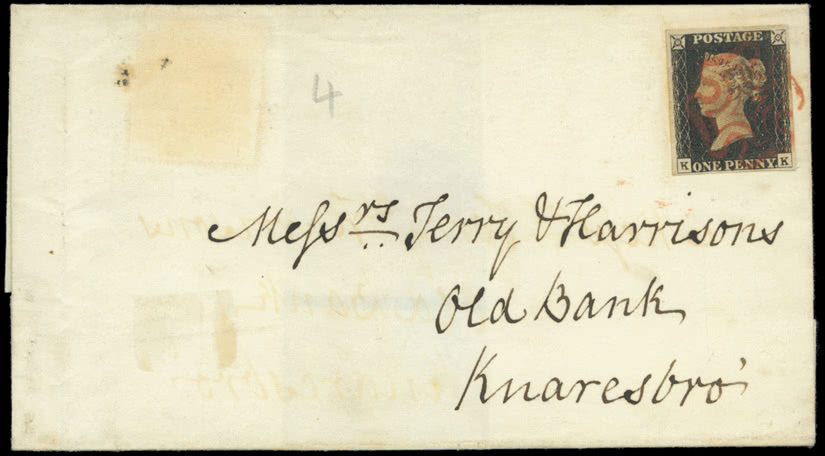 POSTAGE
K ONE PENNY K
4
Meſsrs Terry & Harrisons
Old Bank
Knaresbro'